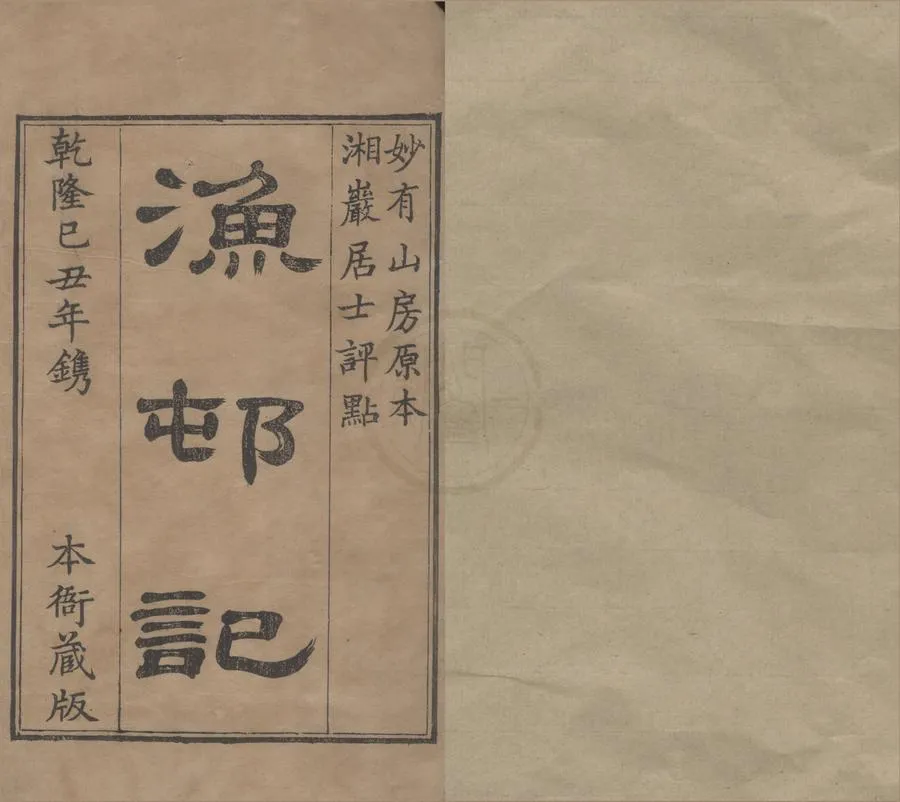 妙有山房原本
湘巖居士評點
漁邨記
乾隆己丑年鐫
本衙藏版